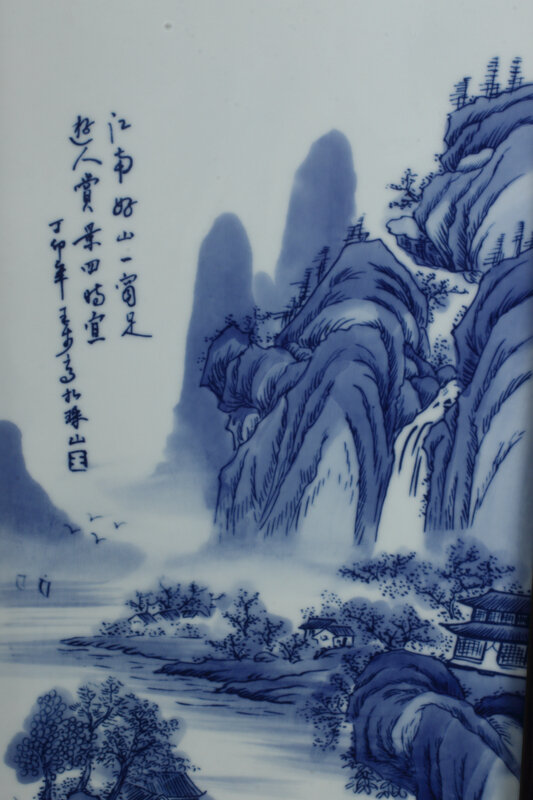 江南好山一窗足
遊人賞景四時宜
丁卯年王步寫於珠山王